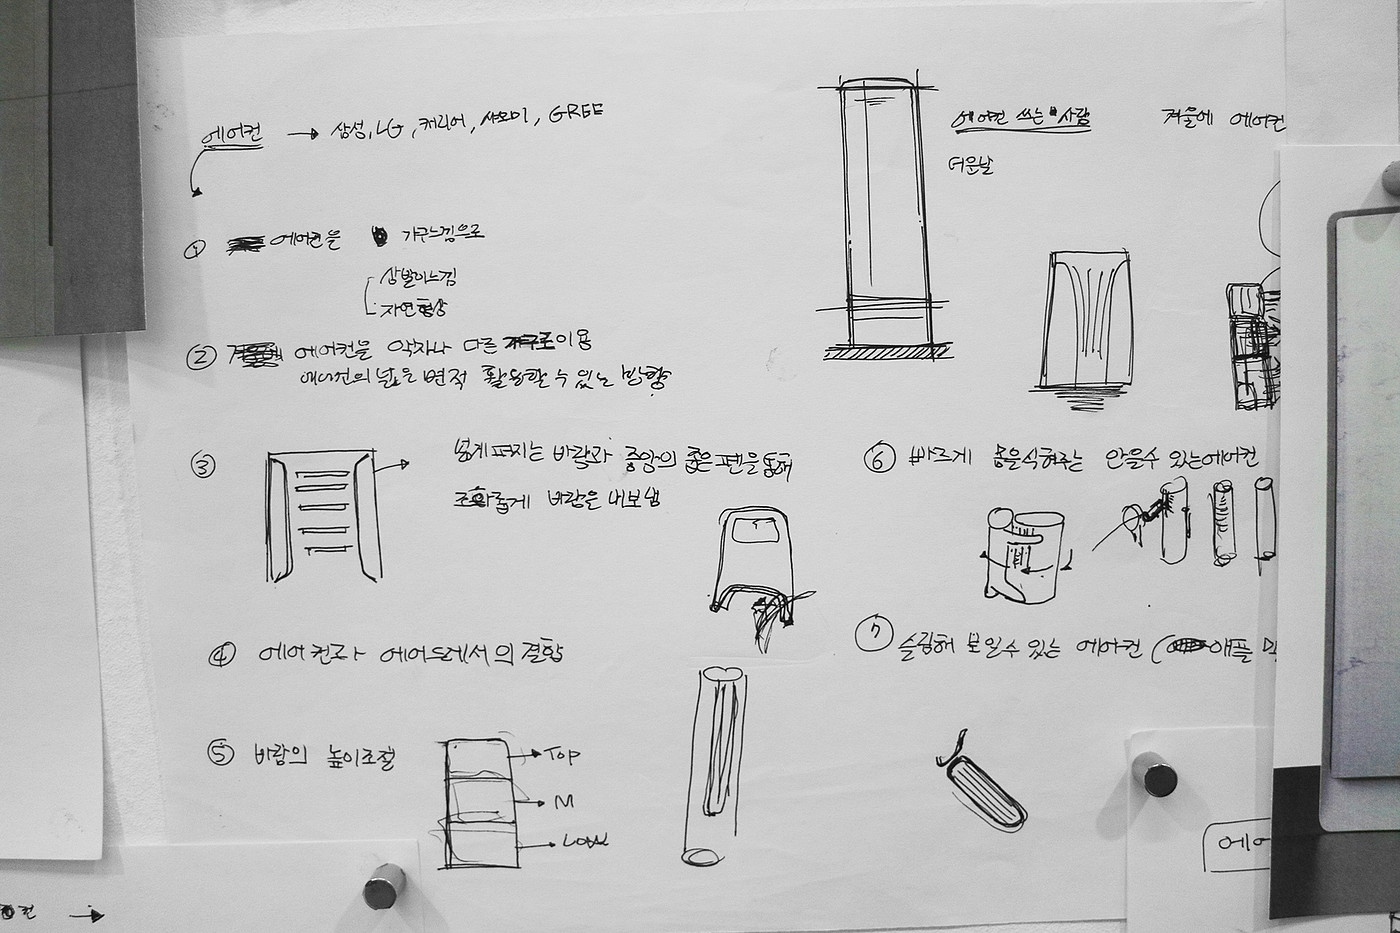 에어컨 → 삼성, LG, 캐리어, 샤오미, GREE
① 에어컨을 가구느낌으로
삼발이느낌
자연형상
② 에어컨을 악자나 다른 이용
에어컨의 넓은 면적 활용할 수 있는 방향
③ 넓게 퍼지는 바람과 중앙의 좁은 팬을 통해
조화롭게 바람을 내보냄
④ 에어컨과 에어드레서의 결합
⑤ 바람의 높이조절
Top
M
Low
에어컨 쓰는 사람
더운날
겨울에 에어컨
⑥ 빠르게 몸을식혀주는 안을수 있는에어컨
⑦ 슬림해 보일수 있는 에어컨 (애플
에어
컨 →